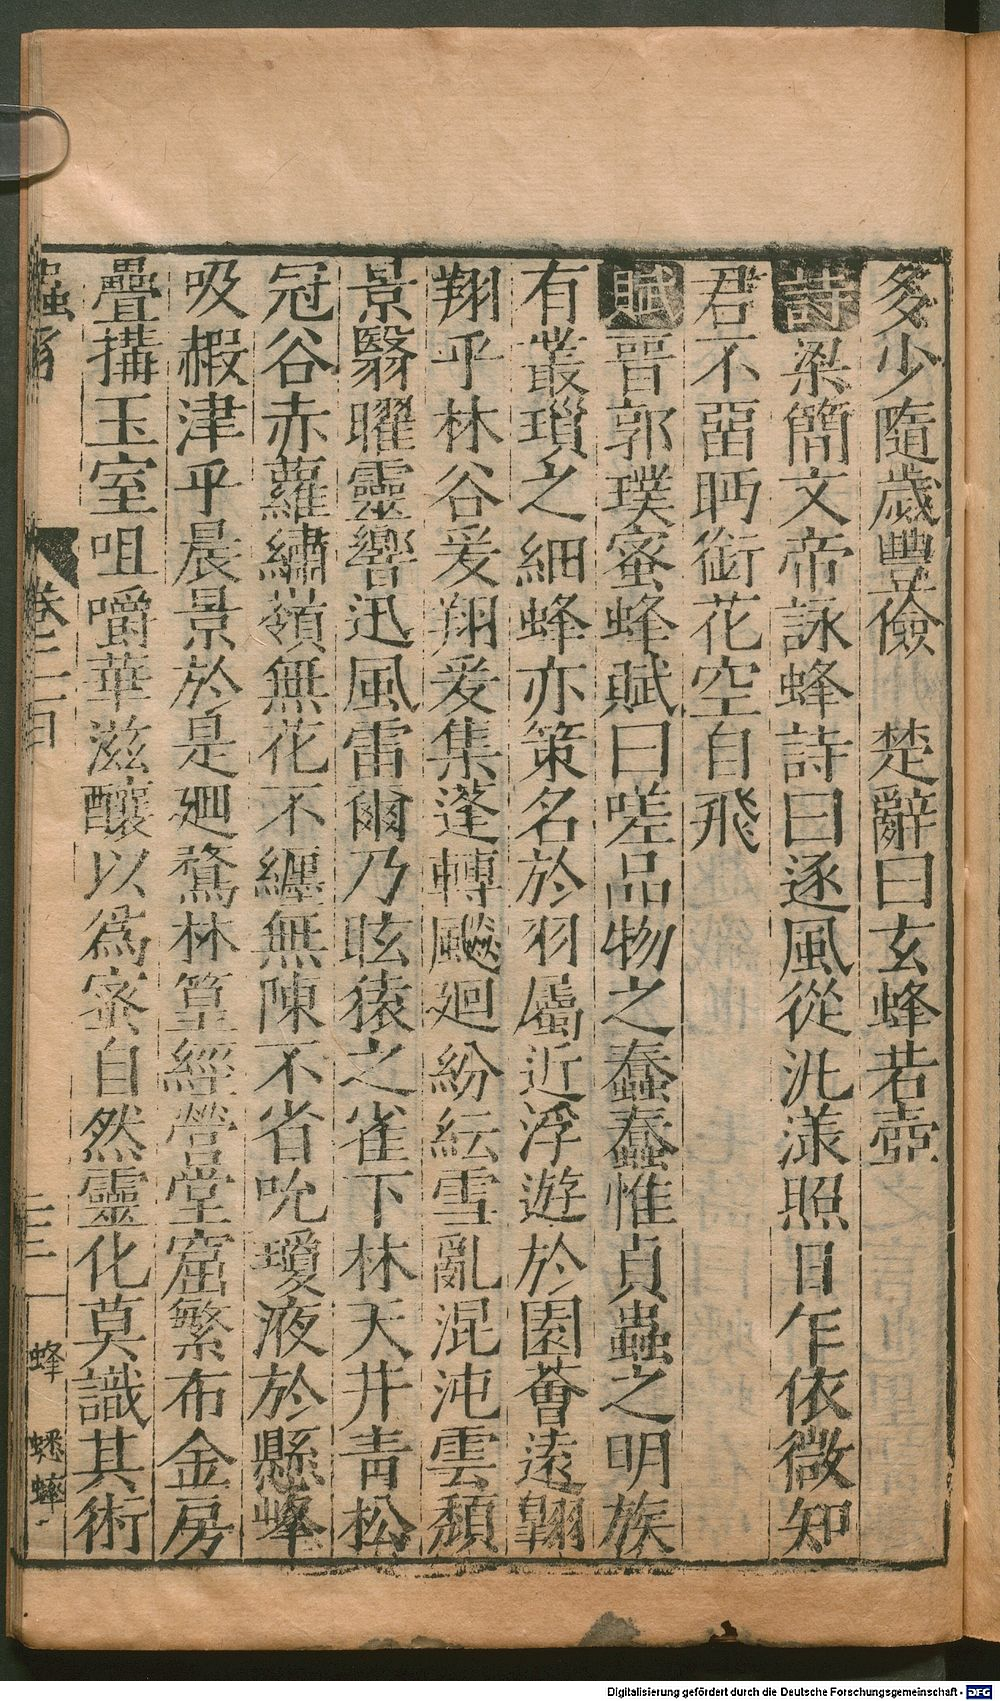 多少隨歲豐儉　楚辭曰玄蜂若壺
詩梁簡文帝詠蜂詩曰逐風從泚漾照日乍依微知
君不畱眄銜花空自飛
賦晉郭璞蜜蜂賦曰嗟品物之蠢蠢惟貞蟲之明族
有叢瑣之細蜂亦策名於羽屬近浮遊於園薈遠翱
翔乎林谷爰翔爰集蓬轉飈廻紛紜雪亂混沌雲頹
景翳曜靈響迅風雷爾乃眩猿之雀下林天井青松
冠谷赤蘿繡嶺無花不纏無陳不省吮瓊液於懸峰
吸赮津乎晨景於是廻鶩林篁經營堂窟繁布金房
疊搆玉室咀嚼華滋釀以爲蜜自然靈化莫識其術
卷二百
蜂
蟋蟀
Digitalisierung gefördert durch die Deutsche Forschungsgemeinschaft - DFG